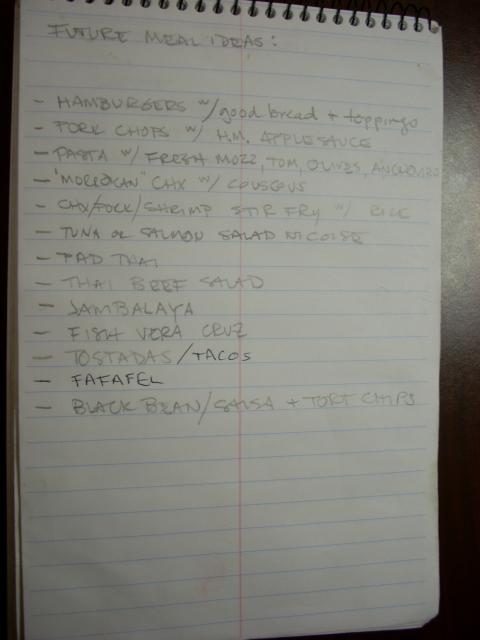 FUTURE MEAL IDEAS:
- HAMBURGERS w/ good bread + toppings
- PORK CHOPS w/ H.M. APPLESAUCE
- PASTA w/ FRESH MOZZ, TOM, OLIVES, ANCHOVIES
- "MOROCCAN" CHX w/ COUSCOUS
- CHX/PORK/SHRIMP STIR FRY w/ RICE
- TUNA or SALMON SALAD NICOISE
- PAD THAI
- THAI BEEF SALAD
- JAMBALAYA
- FISH VERA CRUZ
- TOSTADAS/TACOS
- FAFAFEL
- BLACK BEAN/SALSA + TORT CHIPS